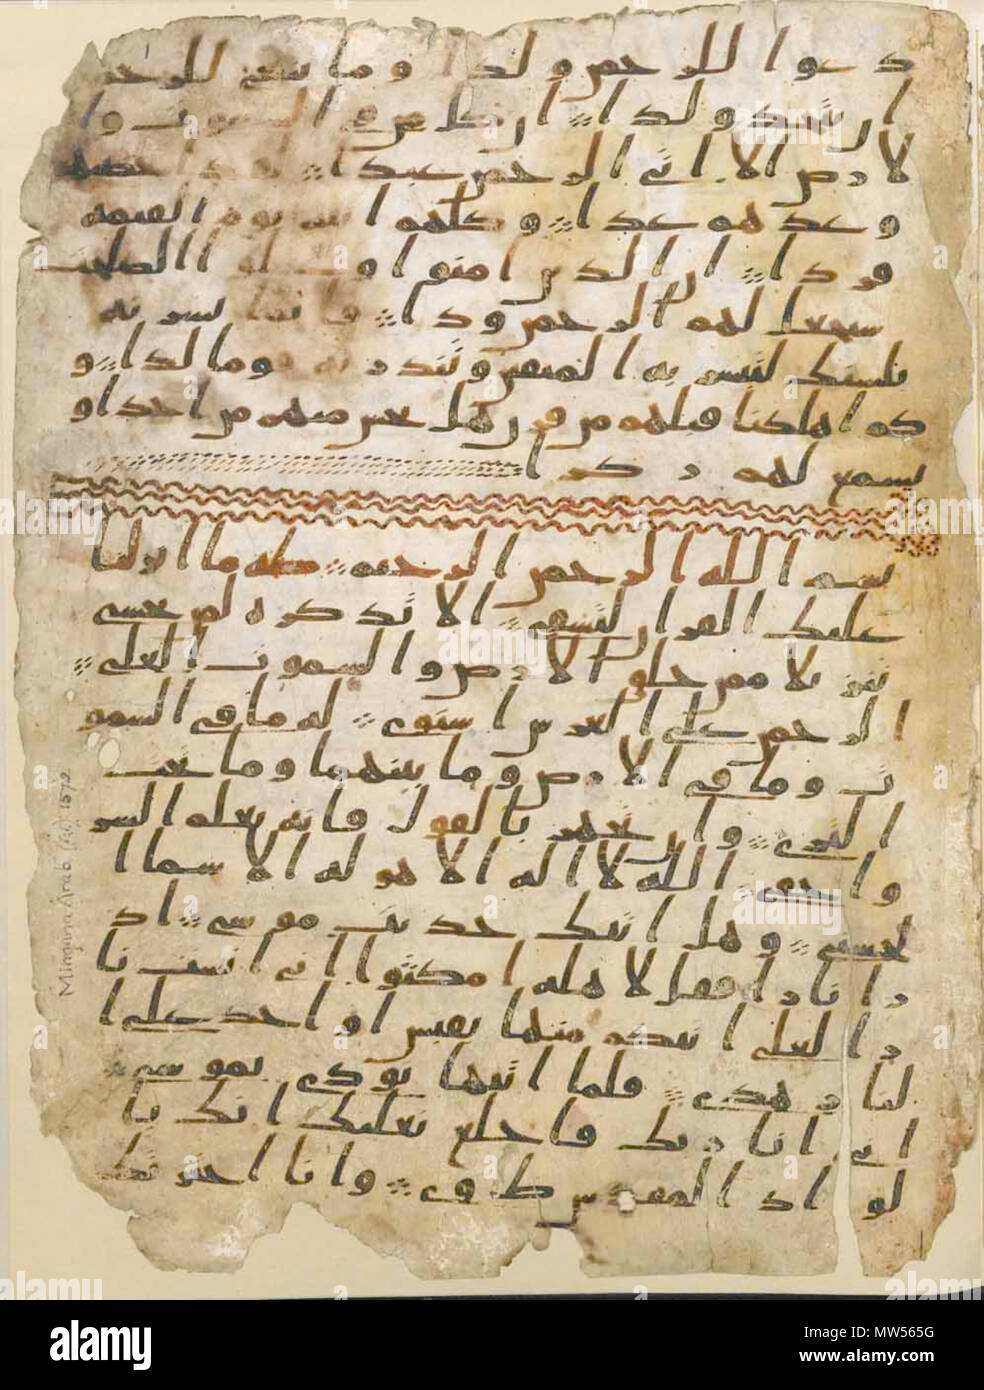 دعوا للرحمن ولدا وما ينبغي للرحمن
ان يتخذ ولدا ان كل من في السموت وا
لارض الا اتي الرحمن عبدا لقد احصيهم
وعدهم عدا وكلهم اتيه يوم القيمه
فردا ان الذين امنوا وعملوا الصلحت
سيجعل لهم الرحمن ودا فانما يسرنه
بلسنك لتبشر به المتقين وتنذر به قوما لدا و
كم اهلكنا قبلهم من قرن هل تحس منهم من احد او
تسمع لهم ركزا
بسم الله الرحمن الرحيم طه ما انزلنا
عليك القران لتشقى الا تذكره لمن يخشى
تنزيلا ممن خلق الارض والسموت العلى
الرحمن على العرش استوى له ما في السمو
ت وما في الارض وما بينهما وما تحت
الثرى وان تجهر بالقول فانه يعلم السر
واخفى الله لا اله الا هو له الاسما ا
لحسنى وهل اتيك حديث موسى اذ
را نارا فقل لاهله امكثوا اني انست نا
را لعلي اتيكم منها بقبس او اجد على ا
لنار هدى فلما اتيها نودي يموسى
اني انا ربك فاخلع نعليك انك با
لواد المقدس طوى وانا اخترتك
Mingana Arab (Isl) 1572
alamy
Image ID: MW565G
www.alamy.com